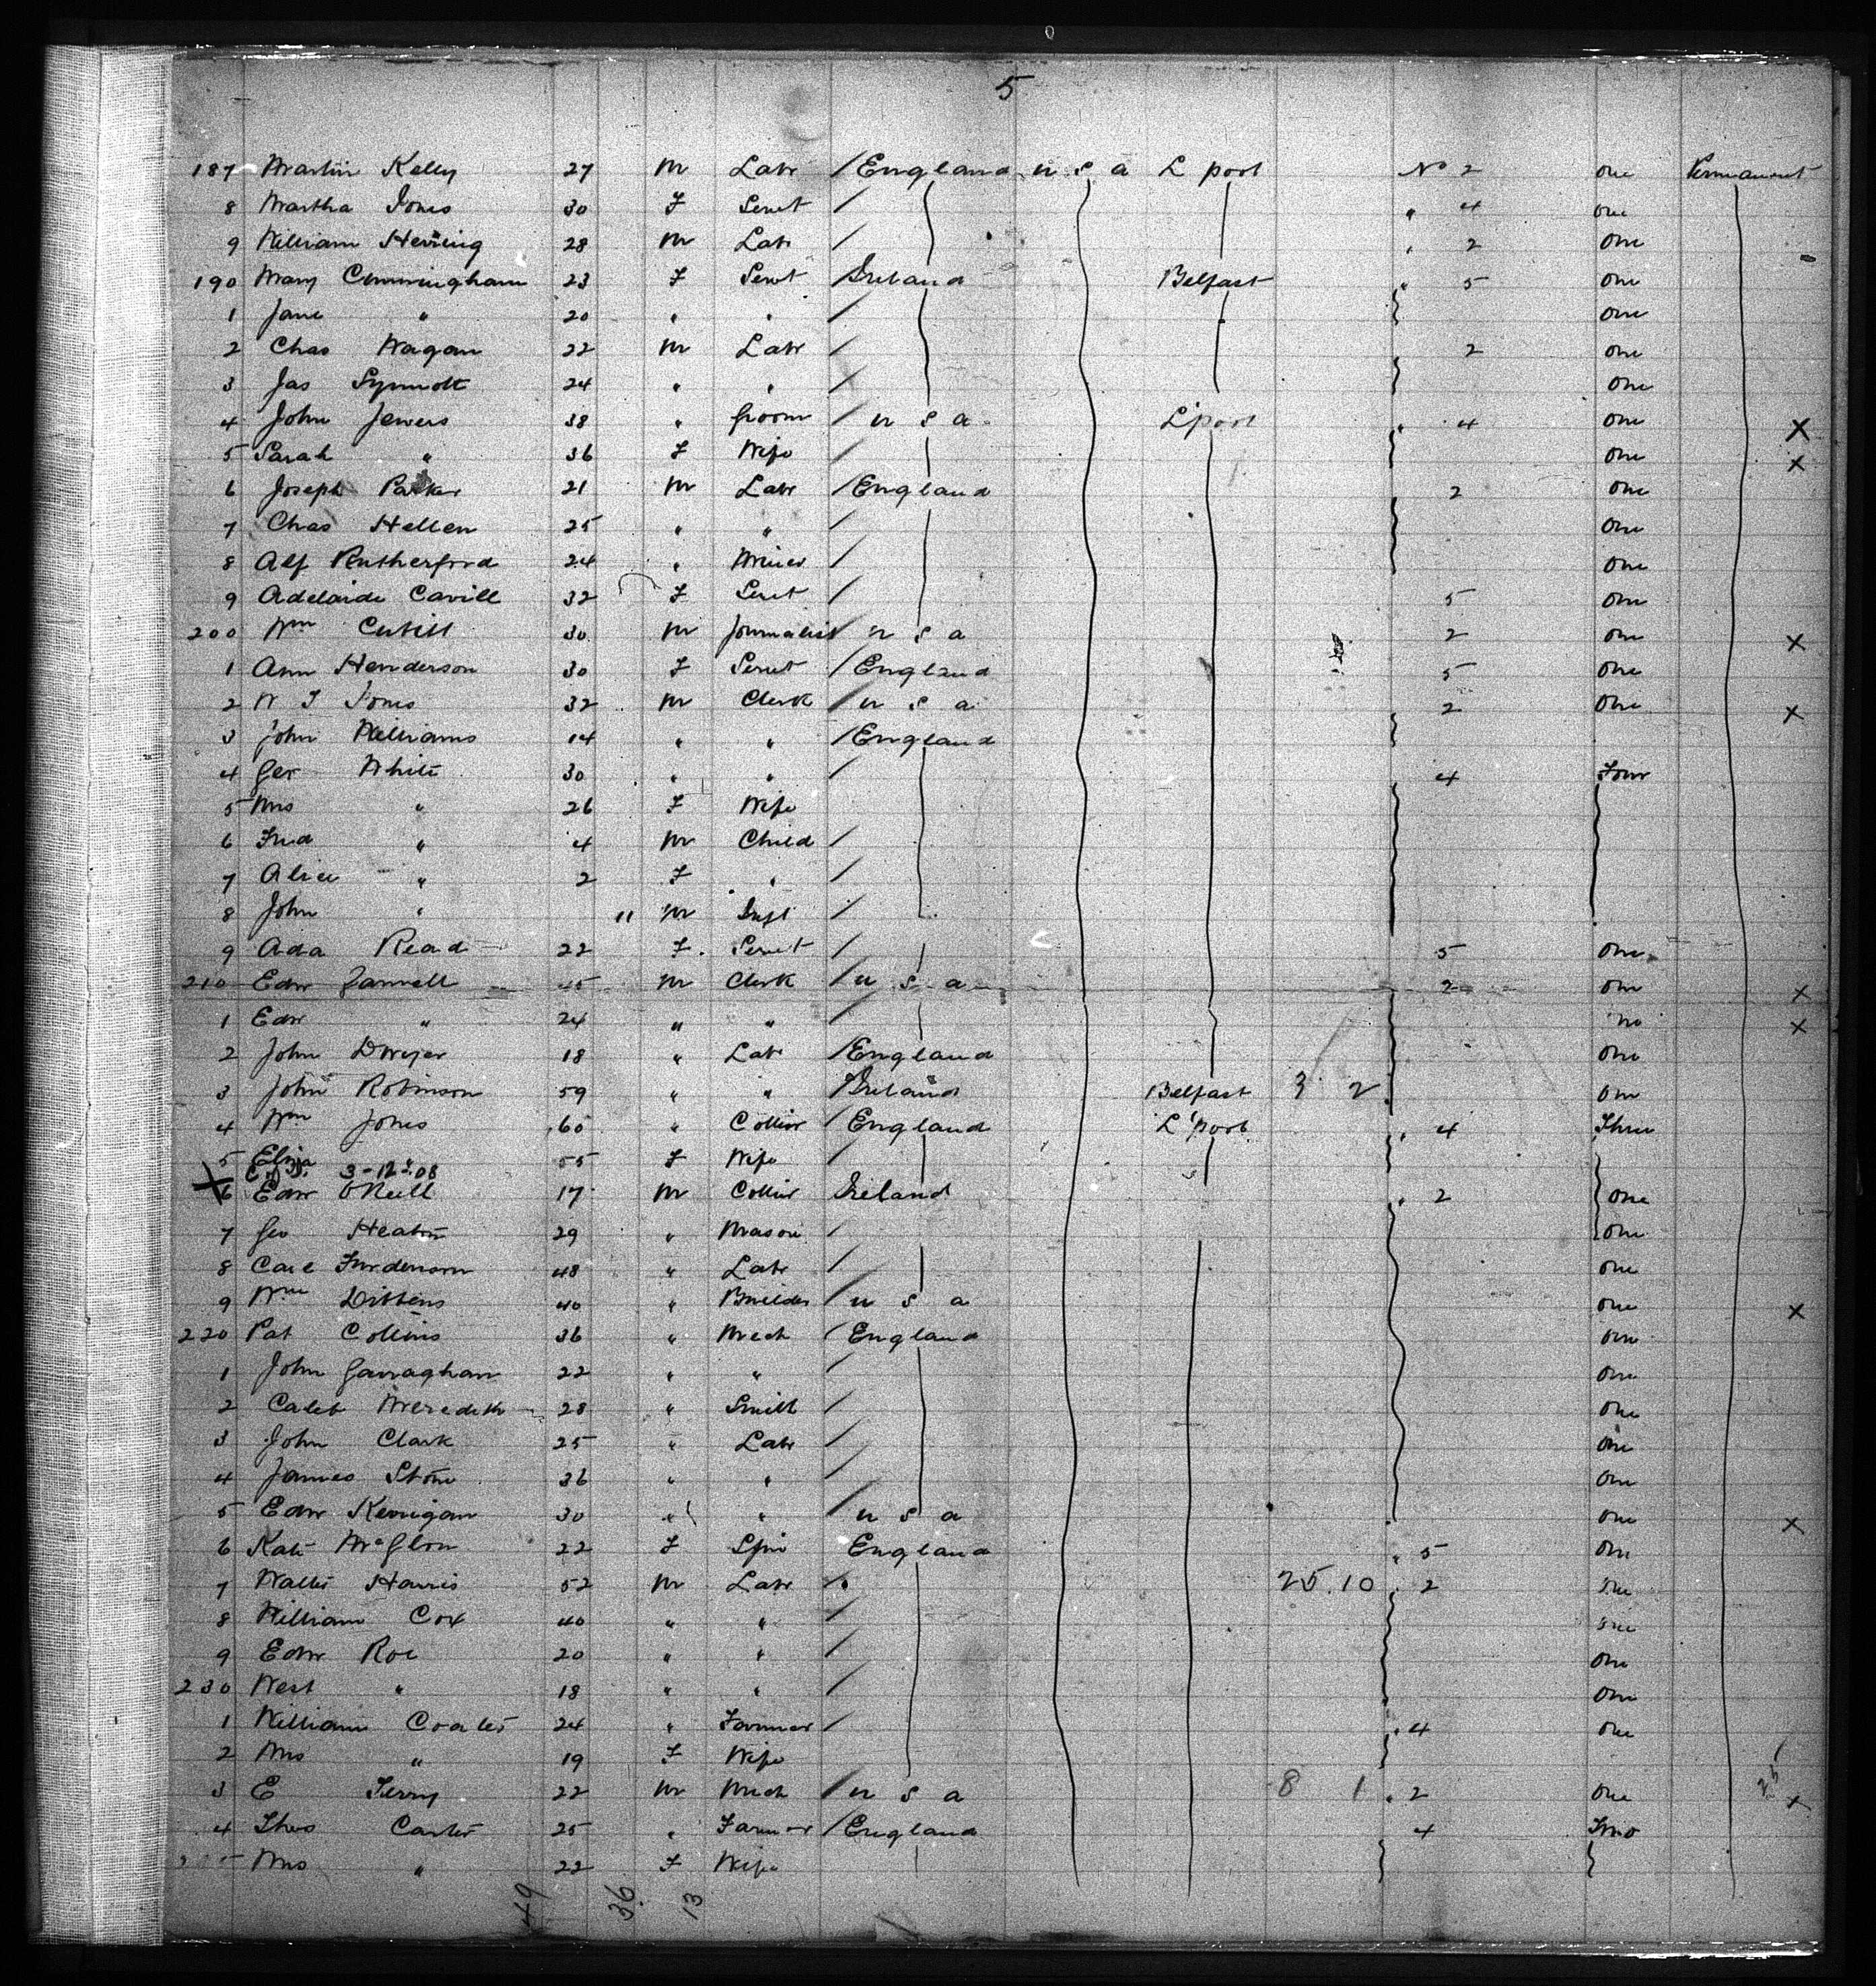 5
187 Martin Kelly 27 M Labr / England U S A L'pool No 2 One Permanent
8 Martha Jones 30 F Servt / " 4 One
9 William Herring 28 M Labr / " 2 One
190 Mary Cunningham 23 F Servt / Ireland Belfast " 5 One
1 Jane " 20 " " / One
2 Chas Wagan 22 M Labr / 2 One
3 Jas Synnott 24 " " / One
4 John Jewers 38 " Groom / U S A L'pool " 4 One X
5 Sarah " 36 F Wife / One X
6 Joseph Parker 21 M Labr / England 2 One
7 Chas Hellen 25 " " / One
8 Alf Rutherford 24 " Miner / One
9 Adelaide Cavill 32 F Servt / 5 One
200 Wm 30 M Journalist / U S A 2 One X
1 Ann Henderson 30 F Servt / England 5 One
2 W J Jones 32 M Clerk / U S A 2 One X
3 John Williams 14 " " / England
4 Geo White 30 " " / 4 Four
5 Mrs " 26 F Wife
6 Fred " 4 M Child /
7 Alice " 2 F " /
8 John " 11 M Inft /
9 Ada Read 22 F Servt / 5 One
210 Edw 45 M Clerk / U S A 2 One X
1 Edw " 24 " " / no X
2 John Dwyer 18 " Labr / England One
3 John Robinson 59 " " / Ireland Belfast 3 2 One
4 Wm Jones 60 " Collier / England L'pool " 4 Three
5 Eliza " 55 F Wife /
3-12-08
X 6 Edw O'Neill 17 M Collier Ireland " 2 One
7 Geo Heaton 29 " Mason / One
8 Carl 48 " Labr / One
9 Wm Dibbens 40 " Builder / U S A One X
220 Pat Collins 36 " Mech / England One
1 John Garraghan 22 " " / One
2 Caleb Meredith 28 " Smith / One
3 John Clark 25 " Labr / One
4 James Stone 36 " " / One
5 Edw Kerrigan 30 " " / U S A One X
6 Kate McGlon 22 F Spin England " 5 One
7 Walter Harris 52 M Labr / 25.10 " 2 One
8 William Cox 40 " " / One
9 Edw Roe 20 " " / One
230 West " 18 " " / One
1 William Coates 24 " Farmer / " 4 One
2 Mrs " 19 F Wife
3 E Terry 22 M Mech / U S A 8 1 " 2 One X
4 Thos Carter 25 " Farmer / England 4 Two
Mrs " 22 F Wife
49 36 13